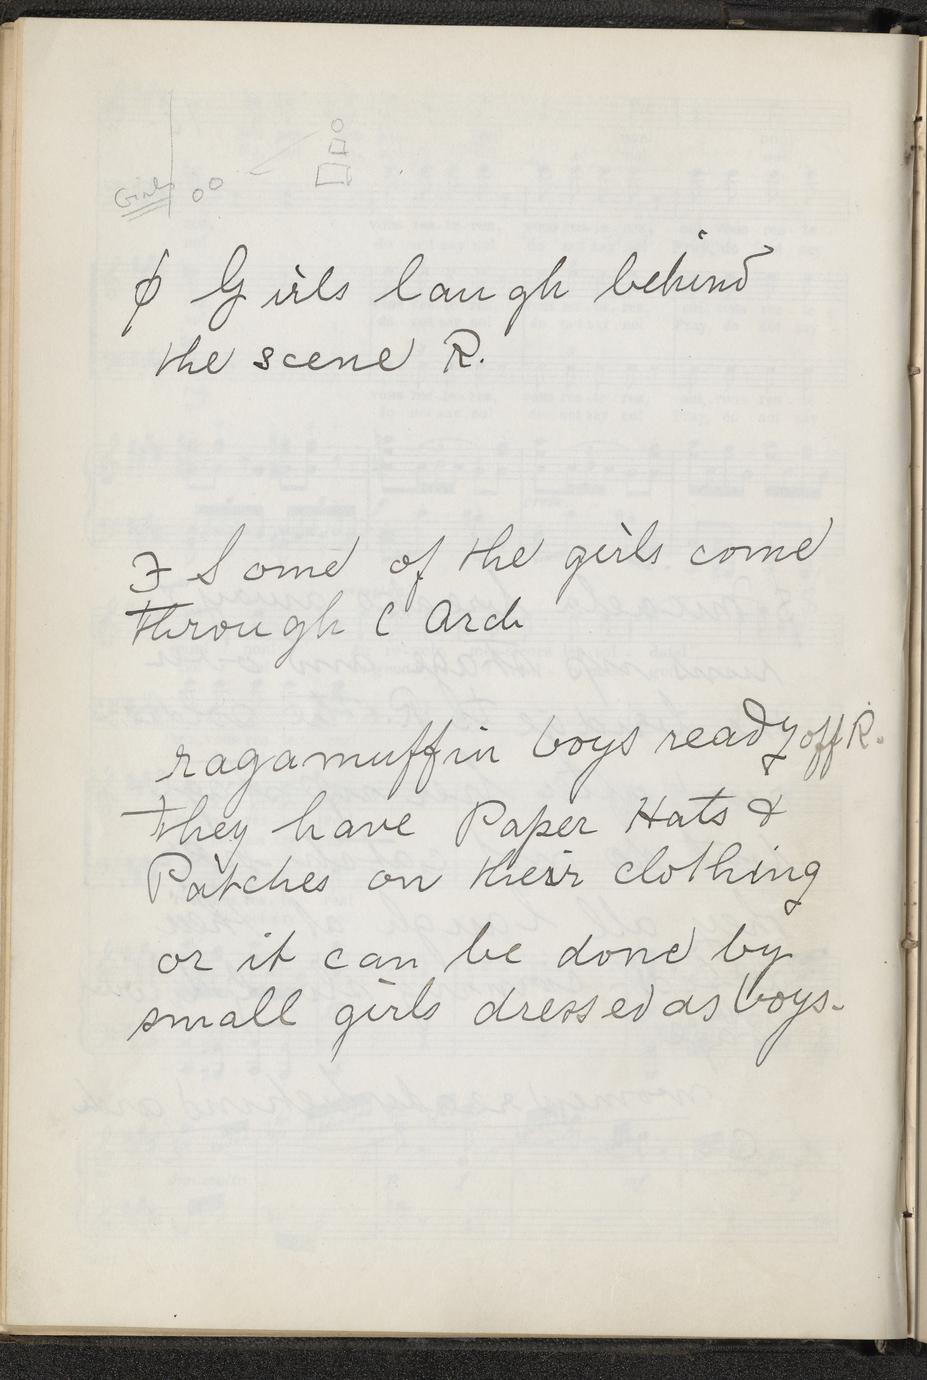 Girls
ϕ Girls laugh behind
the scene R.
Ɜ Some of the girls come
through C Arch
ragamuffin boys ready off R.
they have Paper Hats &
Patches on their clothing
or it can be done by
small girls dressed as boys.